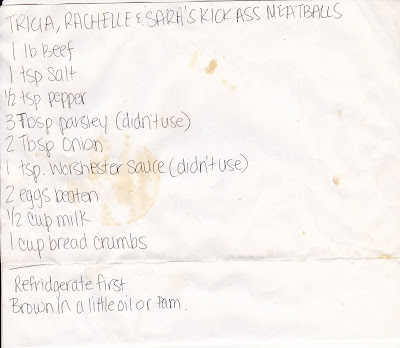 TRICIA, RACHELLE & SARA'S KICK ASS MEATBALLS
1 lb Beef
1 tsp Salt
1/2 tsp pepper
3 Tbsp parsley (didn't use)
2 Tbsp onion
1 tsp. Worshester Sauce (didn't use)
2 eggs beaten
1/2 cup milk
1 cup bread crumbs
Refridgerate first
Brown in a little oil or Pam.